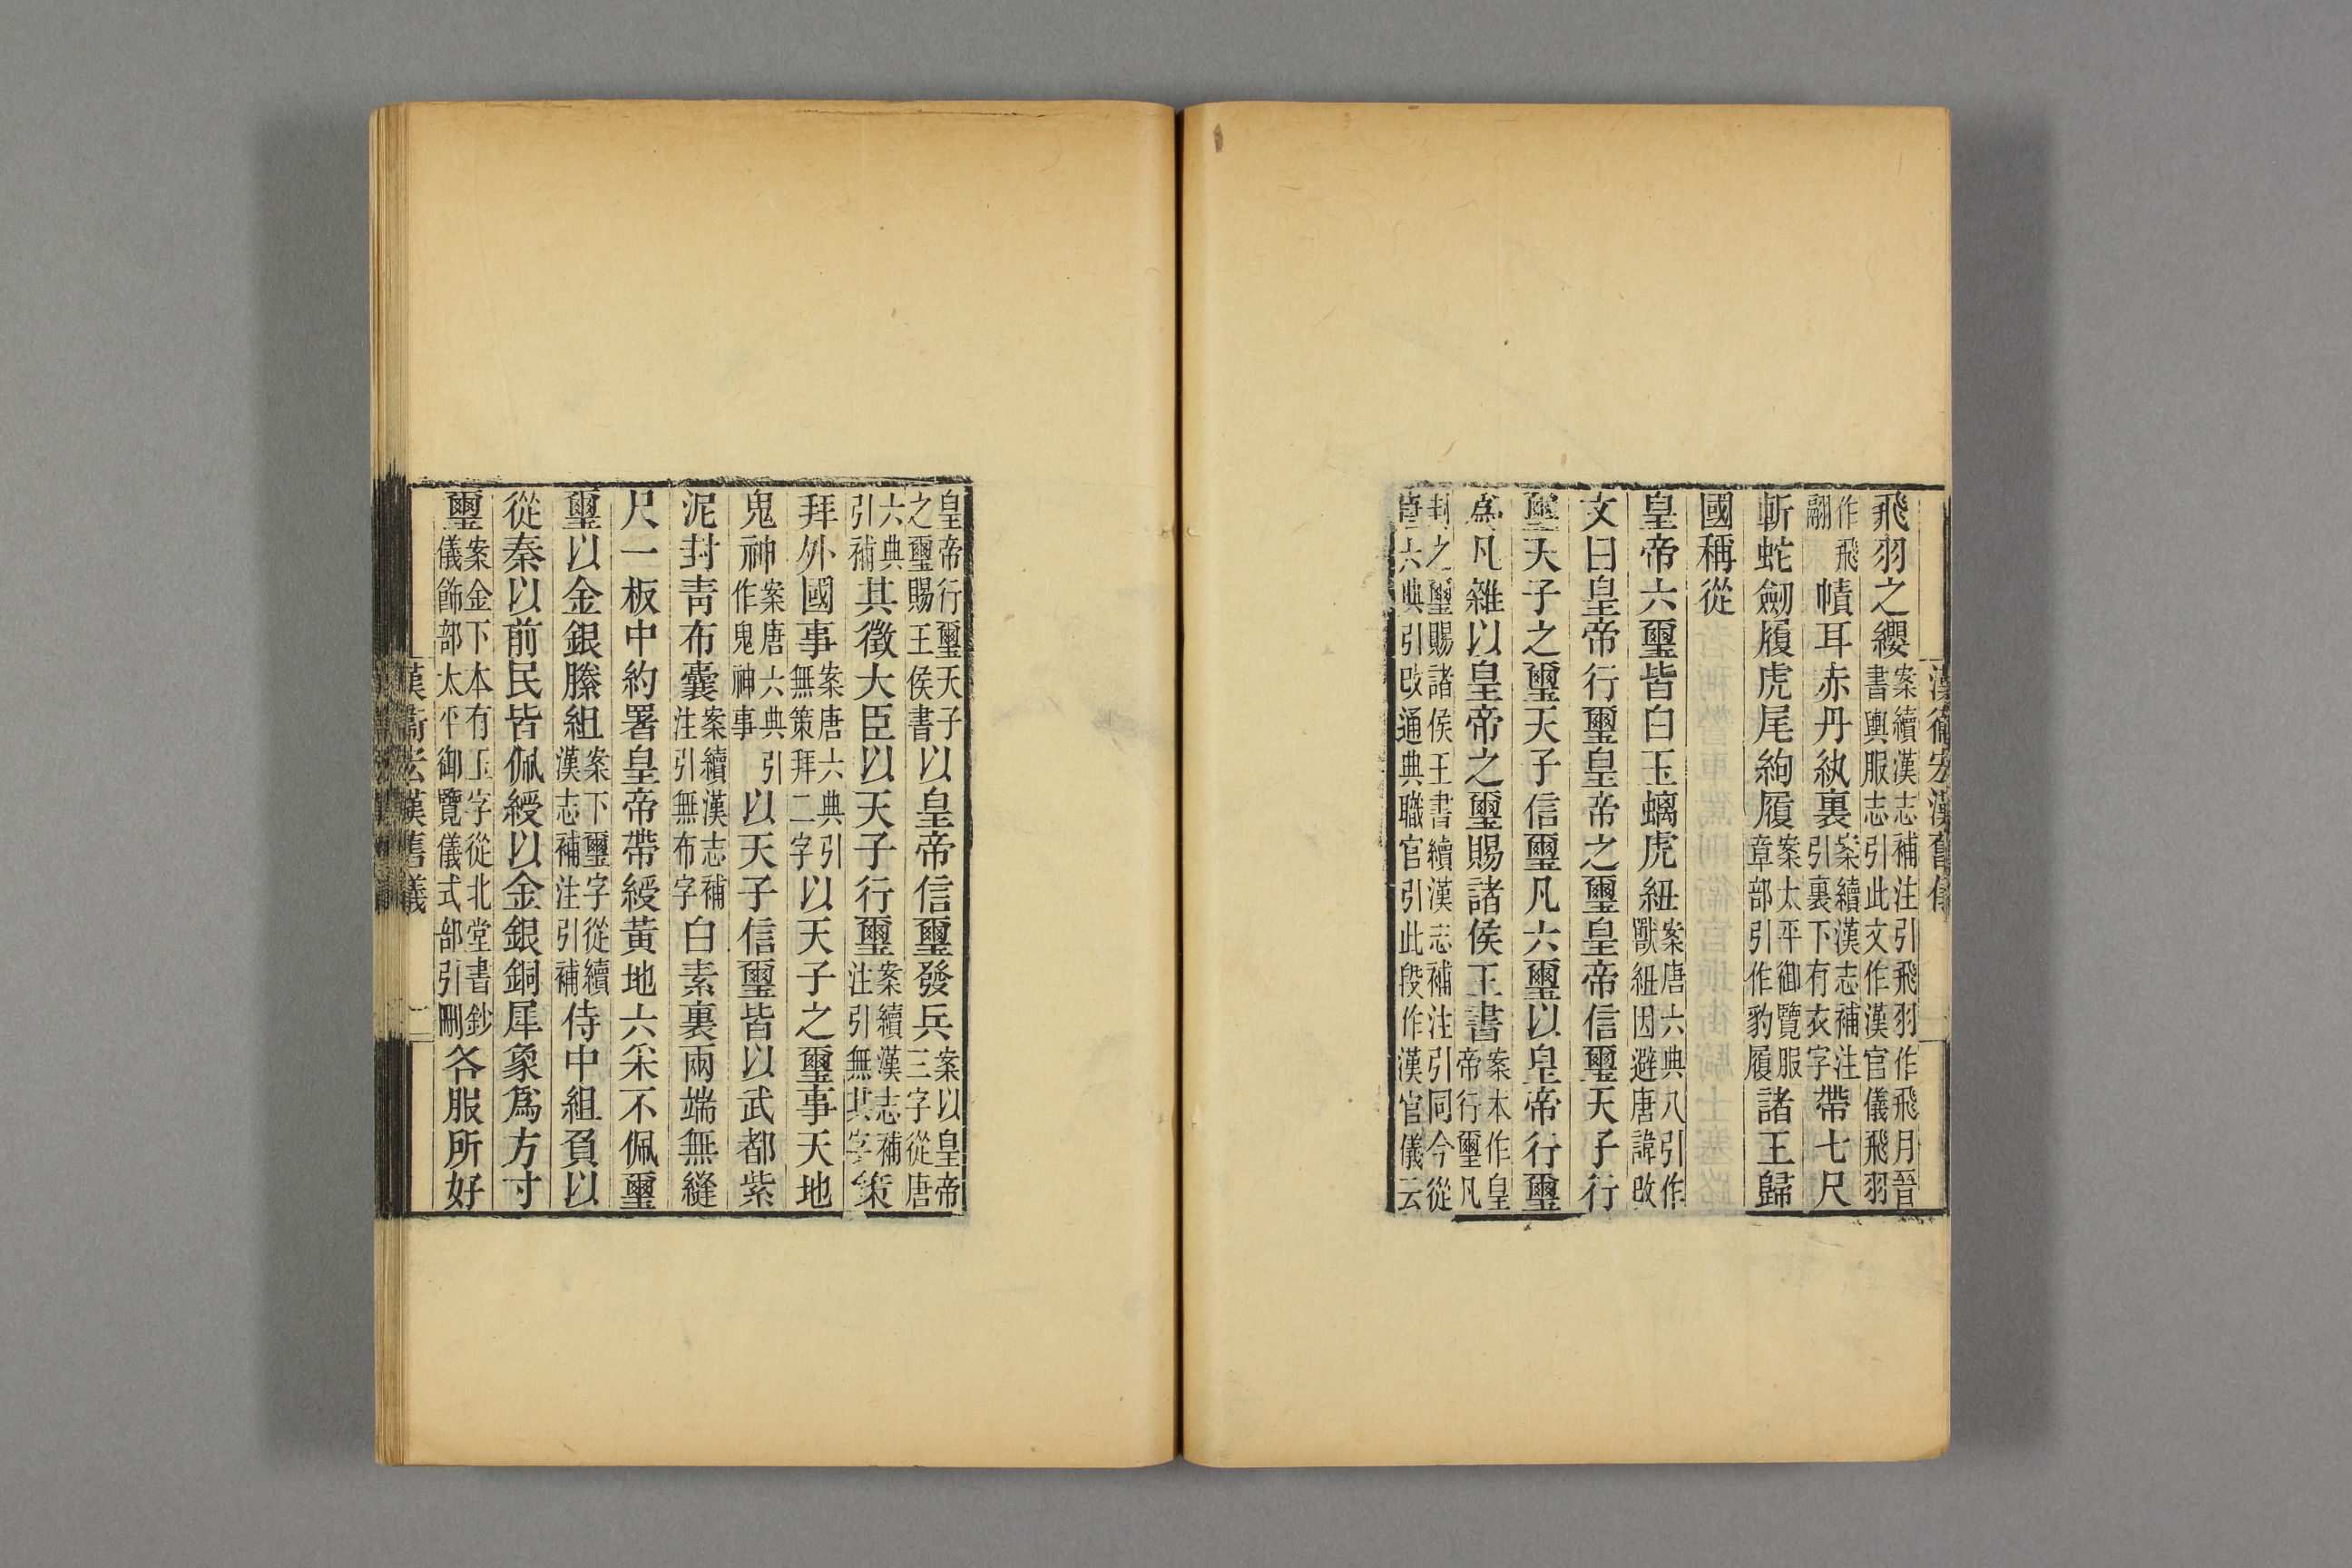 飛羽之纓案續漢志補注引飛羽作飛月晉書輿服志引此文作漢官儀飛羽
作飛翮幘耳赤丹紈裏案續漢志補注引裏下有衣字帶七尺
斬蛇劒履虎尾絇履案太平御覽服章部引作豹履諸王歸
國稱從
皇帝六璽皆白玉螭虎紐案唐六典八引作獸紐因避唐諱改
文曰皇帝行璽皇帝之璽皇帝信璽天子行
璽天子之璽天子信璽凡六璽以皇帝行璽
爲凡雜以皇帝之璽賜諸侯王書案本作皇帝行璽凡
封之璽賜諸侯王書續漢志補注引同今從唐六典引改通典職官引此段作漢官儀云
漢衞宏漢舊儀
皇帝行璽天子之璽賜王侯書以皇帝信璽發兵案以皇帝三字從唐
六典引補其徵大臣以天子行璽案續漢志補注引無其字策
拜外國事案唐六典引無策拜二字以天子之璽事天地
鬼神案唐六典引作鬼神事以天子信璽皆以武都紫
泥封靑布囊案續漢志補注引無布字白素裏兩端無縫
尺一板中約署皇帝帶綬黃地六采不佩璽
璽以金銀縢組案下璽字從續漢志補注引補侍中組負以
從秦以前民皆佩綬以金銀銅犀象爲方寸
璽案金下本有玉字從北堂書鈔儀飾部太平御覽儀式部引刪各服所好
漢衞宏漢舊儀 二